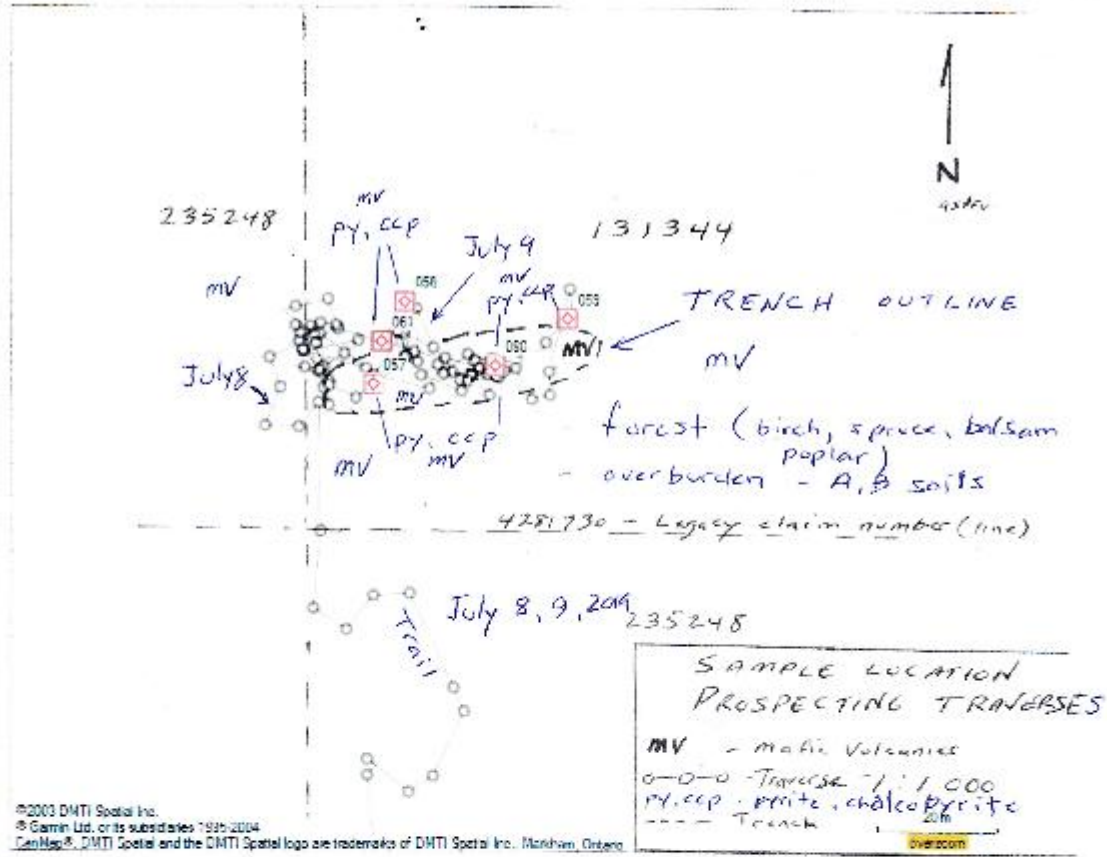 N
235248
131344
mv
py, ccp
July 9
mv
py, ccp
mv
058
059
061
060
057
TRENCH OUTLINE
MV
mv
July 8
mv
py, ccp
mv
mv
forest (birch, spruce, balsam
poplar)
- overburden - A, B soils
4281730 - Legacy claim number (line)
July 8, 9, 2019
235248
Trail
SAMPLE LOCATION
PROSPECTING TRAVERSES
MV - Mafic Volcanics
o-o-o - Traverse 1:1000
py, ccp - pyrite, chalcopyrite
---- Trench
20m
overzoom
©2003 DMTI Spatial Inc.
© Garmin Ltd. or its subsidiaries 1995-2004
CanMap®, DMTI Spatial and the DMTI Spatial logo are trademarks of DMTI Spatial Inc., Markham, Ontario